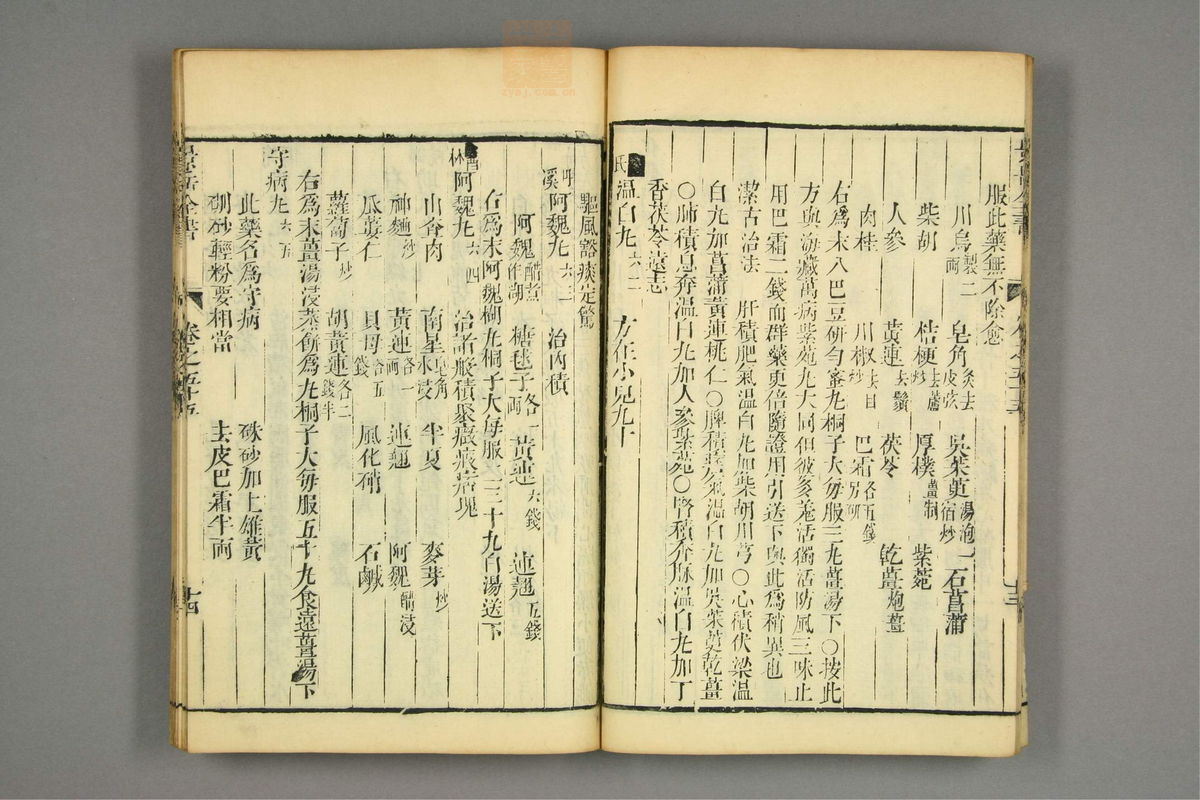 服此藥無不除愈
川烏製二兩 皂角炙去皮弦 吳茱萸湯泡宿炒 石菖蒲
柴胡 桔梗去蘆炒 厚樸薑制 紫菀
人參 黃連去鬚 茯苓 乾薑炮薑
肉桂 川椒去目炒 巴霜另研各五錢
右爲末入巴豆研勻蜜丸桐子大每服三丸薑湯下○按此
方與海藏萬病紫菀丸大同但彼多羌活獨活防風三味止
用巴霜二錢而群藥更倍隨證用引送下與此爲稍異也
潔古治法 肝積肥氣溫白丸加柴胡川芎○心積伏梁溫
白丸加菖蒲黃連桃仁○脾積痞氣溫白丸加吳茱萸乾薑
○肺積息奔溫白丸加人參紫菀○腎積奔豚溫白丸加丁
香茯苓遠志
氏溫白丸六二 方在小兒九十
驅風豁痰定驚
溪阿魏丸六三 治肉積
阿魏醋煮作湖 糖毬子各一兩 黃連六錢 連翹五錢
右爲末阿魏糊丸桐子大每服二三十丸白湯送下
林阿魏丸六四 治諸般積聚癥瘕痞塊
山查肉 南星皂角水浸 半夏 麥芽炒
神麯炒 黃連各一兩 連翹 阿魏醋浸
瓜蔞仁 貝母各五錢 風化硝 石鹹
蘿蔔子炒 胡黃連各二錢半
右爲末薑湯浸蒸餅爲丸桐子大每服五十丸食遠薑湯下
守病丸六五
此藥名爲守病 硃砂加上雄黃
硇砂輕粉要相當 去皮巴霜半兩
景岳全書
卷之五十五
十四
zysj.com.cn